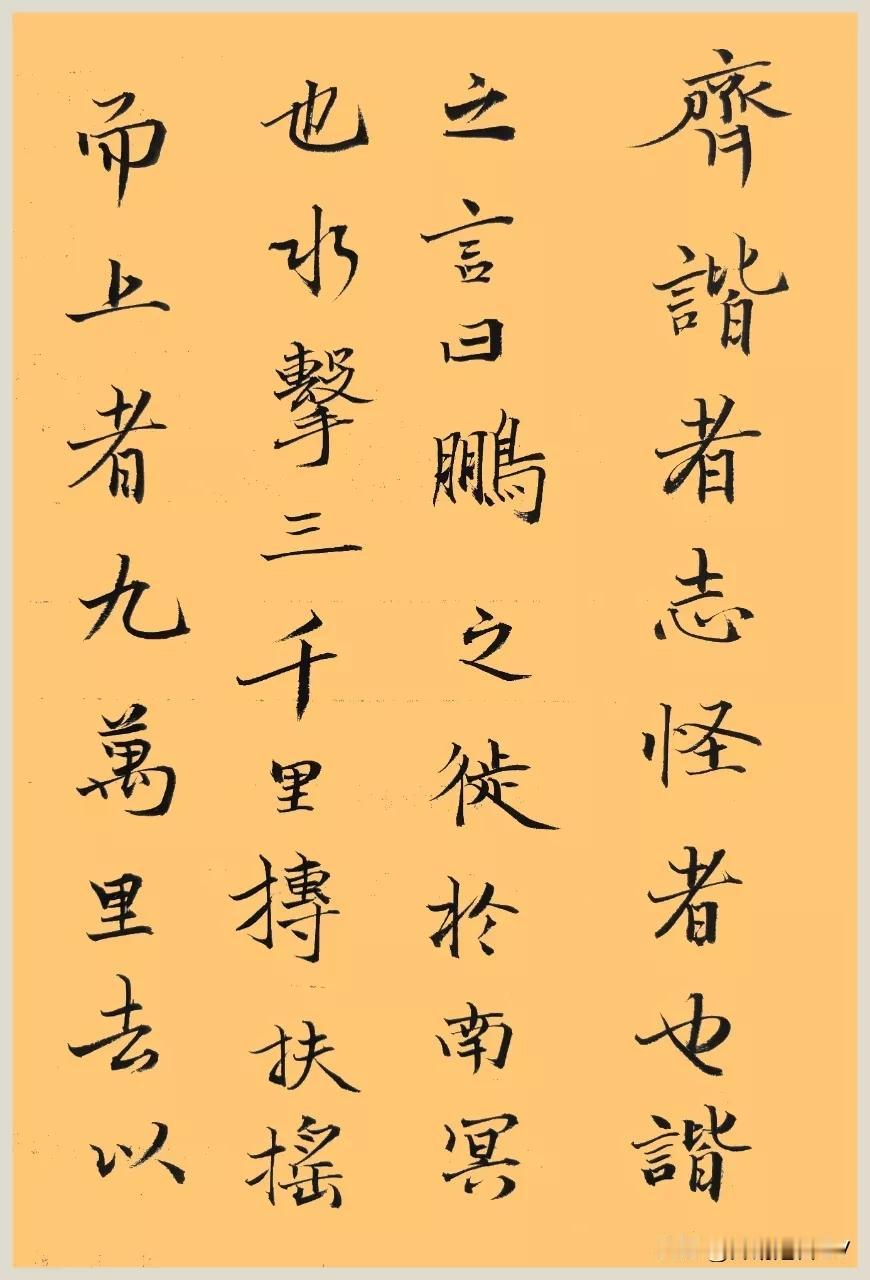 齊諧者志怪者也諧
之言曰鵬之徙於南冥
也水擊三千里摶扶搖
而上者九萬里去以